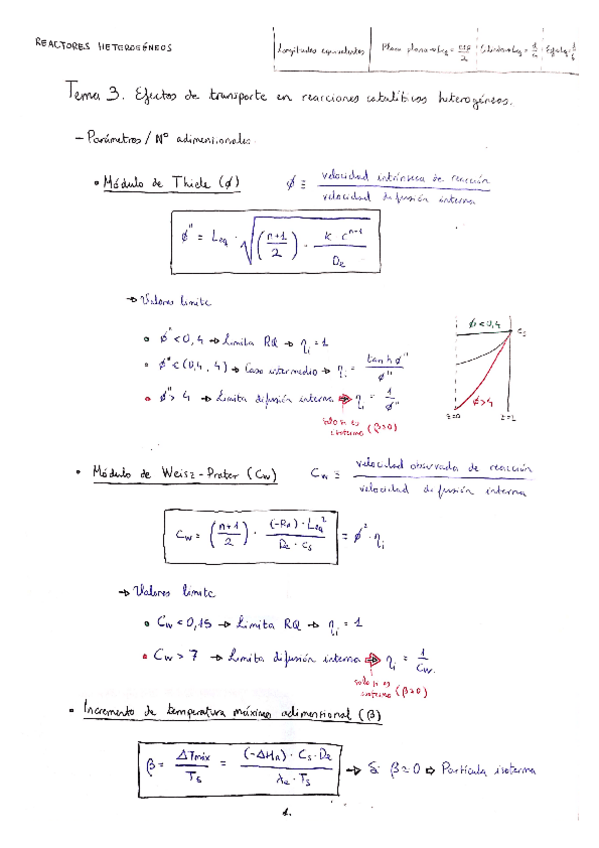 REACTORES HETEROGÉNEOS
Longitudes equivalentes
Placa plana → Leq =
Tema 3. Efectos de transporte en reacciones catalíticas heterogéneas.
- Parámetros / Nº adimensionales
• Módulo de Thiele (ϕ) ϕ ≡ velocidad intrínseca de reacción / velocidad difusión interna
ϕ'' = Leq · √((n+1)/2) · (k c^(n-1))/De
→ Valores límite
• ϕ'' < 0,4 → Limita RQ → ηi = 1
• ϕ'' ∈ (0,4, 4) → Caso intermedio → ηi = tanh ϕ'' / ϕ''
• ϕ'' > 4 → Limita difusión interna → ηi = 1/ϕ''
solo si es isotermo (β≈0)
ϕ < 0,4
Cs
ϕ > 4
z=0
z=L
• Módulo de Weisz-Prater (Cw) Cw ≡ velocidad observada de reacción / velocidad difusión interna
Cw = ((n+1)/2) · ((-RA) · Leq²)/(De · cs) = ϕ² · ηi
→ Valores límite
• Cw < 0,15 → Limita RQ → ηi = 1
• Cw > 7 → Limita difusión interna → ηi = 1/Cw
solo si es isotermo (β≈0)
• Incremento de temperatura máximo adimensional (β)
β = ΔTmáx / Ts = ((-ΔHR) · Cs · De)/(λe · Ts) → Si β≈0 → Partícula isoterma
1.